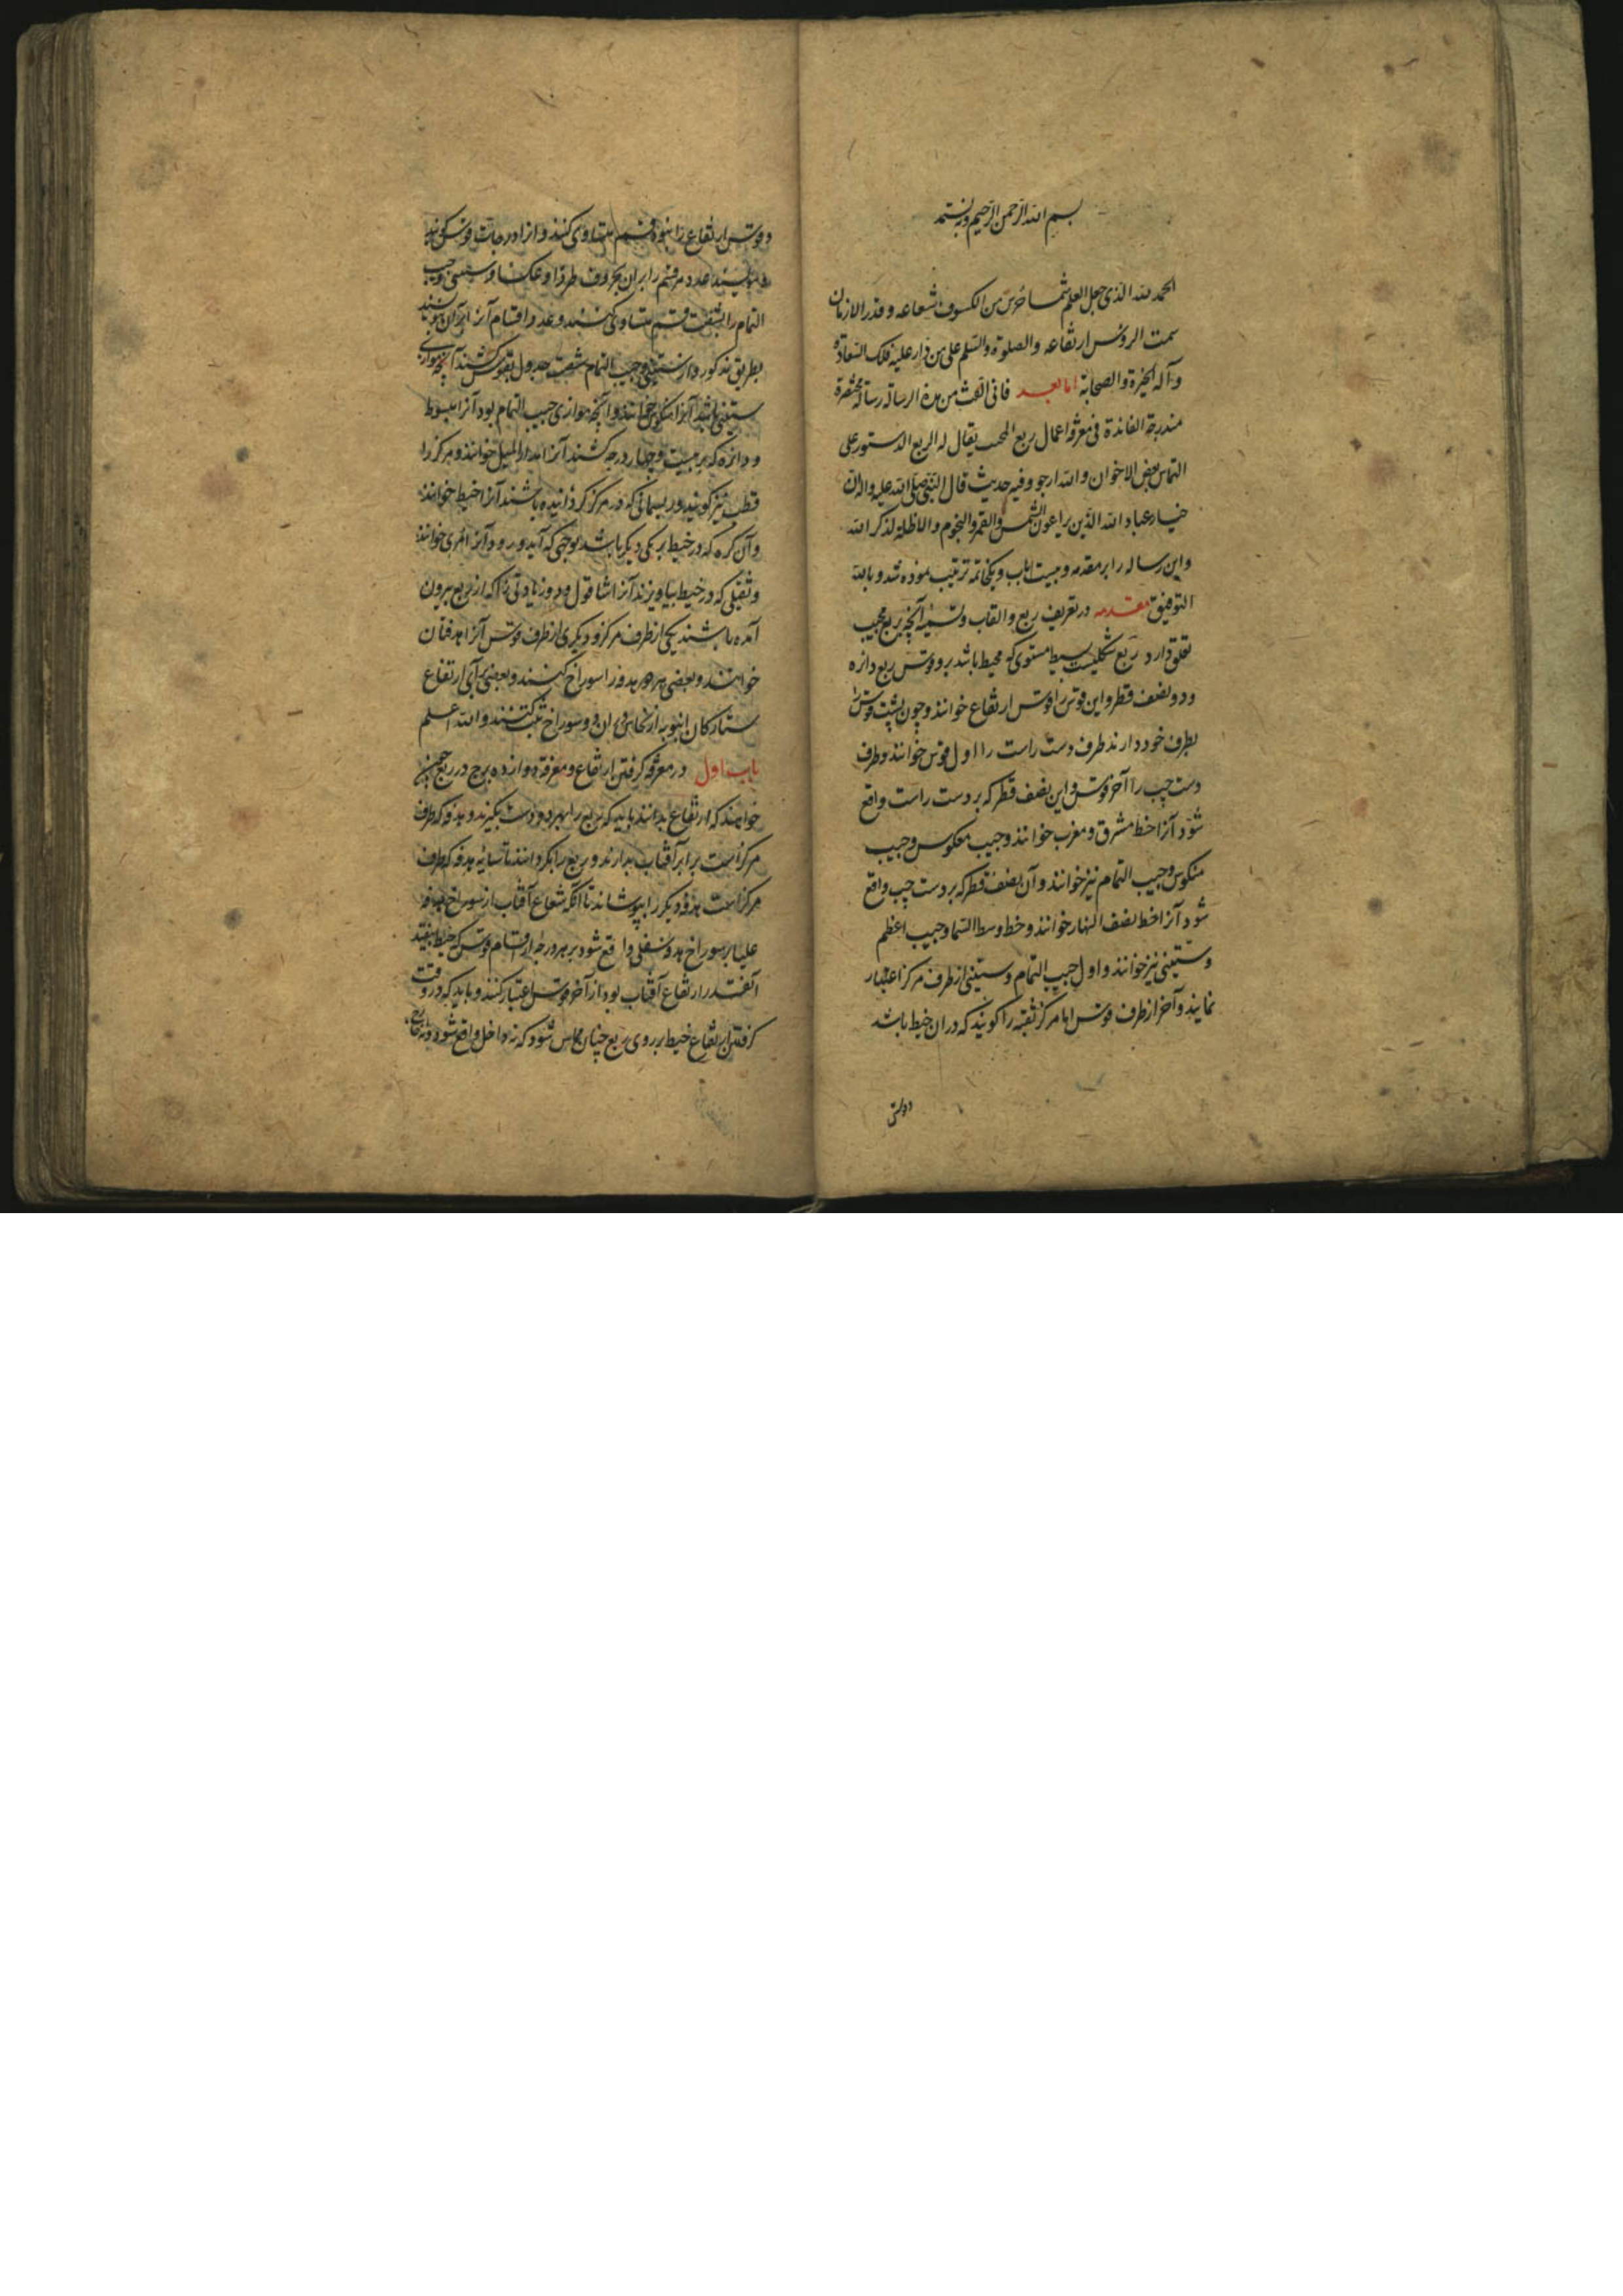 بسم الله الرحمن الرحیم وبه نستعین
الحمد لله الذی جعل العلم شمسا حرس من الکسوف شعاعه و قدر الازمان
سمت الروس ارتفاعه والصلوة والسلم علی من دار علیه فلک السعادة
وآله الخیرة والصحابة اما بعد فانی الفت من هذه الرسالة رسالة مختصرة
مندرجة الفائدة فی معرفة اعمال ربع المجیب یقال له الربع الدستور علی
التماس بعض الاخوان والله ارجو وفیه حدیث قال النبی صلی الله علیه واله ان
خیار عباد الله الذین یراعون الشمس والقمر والنجوم والاظلة لذکر الله
واین رساله را بر مقدمه و بیست باب و یک خاتمه ترتیب نموده شد و بالله
التوفیق مقدمه در تعریف ربع والقاب و تسمیه آنچه بربع مجیب
تعلق دارد ربع شکلیست بسیط مستوی که محیط باشد برو قوس ربع دائره
و دو نصف قطر و این قوس را قوس ارتفاع خوانند و چون پشت قوس را
بطرف خود دارند طرف دست راست را اول قوس خوانند و طرف
دست چپ را آخر قوس و این نصف قطر که بر دست راست واقع
شود آنرا خط مشرق و مغرب خوانند و جیب معکوس و جیب
منکوس و جیب التمام نیز خوانند و آن نصف قطر که بر دست چپ واقع
شود آنرا خط نصف النهار خوانند و خط وسط السما و جیب اعظم
و ستینی نیز خوانند و اول جیب التمام و ستینی از طرف مرکز اعتبار
نمایند و آخر از طرف قوس اما مرکز ثقبه را کویند که دران خیط باشد
و قوس ارتفاع را بنود قسم متساوی کنند و از او درجات قوس کویند
و نویسند عدد هر قسم را بران بحروف طردا و عکسا و ستینی و جیب
التمام را بشصت قسم متساوی کنند و عدد اقسام آنرا بران نویسند
بطریق مذکور و از ستینی و جیب التمام شصت جدول بقوس کشند آنچه موازی
ستینی باشد آنرا منکوس خوانند و آنچه موازی جیب التمام بود آنرا مبسوط
و دائره که بر بیست و چهار درجه کشند آنرا مدار المیل خوانند و مرکز را
قطب نیز کویند و ریسمانی که در مرکز کردانیده باشند آنرا خیط خوانند
و آن کره که در خیط بر یکی دیکر باشد بوجهی که آید و رود آنرا مری خوانند
و ثقیلی که در خیط بیاویزند آنرا شاقول و دو زیادتی را که از ربع بیرون
آمده باشند یکی از طرف مرکز و دیکری از طرف قوس آنرا هدفتان
خوانند و بعضی هر دو هدفه را سوراخ کنند و بعضی برای ارتفاع
ستارکان انبوبه از نحاس دران دو سوراخ ترکیب کنند والله اعلم
باب اول در معرفة کرفتن ارتفاع و معرفة دوازده برج در ربع چون
خواهند که ارتفاع بدانند باید که ربع را بهر دو دست بکیرند و هدفه که طرف
مرکز است برابر آفتاب بدارند و ربع را بکردانند تا سایه هدفه که طرف
مرکز است هدفه دیکر را بپوشاند تا آنکه شعاع آفتاب از سوراخ هدفه
علیا بر سوراخ هدفه سفلی واقع شود بر هر درجه از اقسام قوس که خیط بیفتد
آنقدر ارتفاع آفتاب بود از آخر قوس اعتبار کنند و باید که در وقت
کرفتن ارتفاع خیط بر روی ربع چنان مماس شود که نه داخل واقع شود و نه خارج